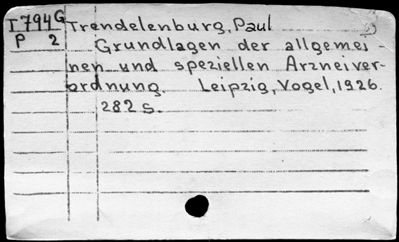 I 794 G Trendelenburg, Paul
P 2 Grundlagen der allgemei-
nen und speziellen Arzneiver-
ordnung. Leipzig, Vogel, 1926.
282 S.